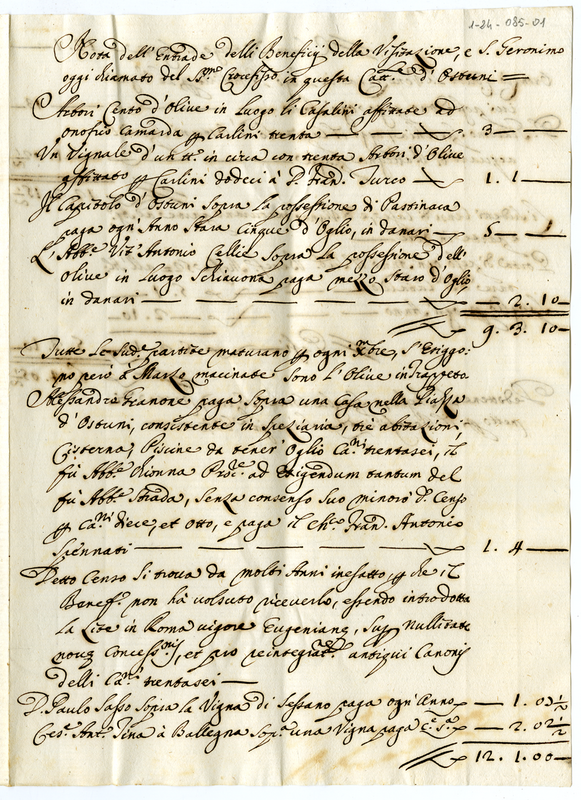 1-24-085-01
Nota dell'Entrade delli Beneficij della Visitazione, e S. Geronimo
oggi chiamato del SS.mo Crocefisso in questa Catt.le d'Ostuni =
Arbori Cento d'Olive in Luogo li Casalini affittate ad
onofrio Camarda p Carlini trenta — 3 —
Un Vignale d'un tt.o in circa con trenta Arbori d'Olive
affittato p Carlini dodeci à D. Fran. Turco — 1. 1 —
Il Capitolo d'Ostuni sopra la possessione di Pastinaca
paga ogn'Anno stara Cinque d'Oglio, in danari — 5 —
L'Abb.e Vit'Antonio Cellie sopra la possessione dell'
Olive in Luogo Schiavona paga mezzo staro d'Oglio
in danari — 2. 10 —
9. 3. 10 —
Tutte le sud.e partite maturano p ogni Xbre, s'esiggo-
no però à Marzo macinate sono l'Olive in trappeto
Alessandro Granone paga sopra una Casa nella Piazza
d'Ostuni, consistente in speziaria, tre abitazioni
Cisterna, Piscine da tener'Oglio Ca.ni trentasei, il
fù Abb.e Proc.e ad exigendum tantum del
fù Abb.e Strada, senza consenso suo minorò d. Censo
p Ca.ni diece, et otto, e paga il Ch.co Fran. Antonio
Spennati — 1. 4 —
Detto Censo si trova da molti Anni inesatto, p che il
Benef.o non hà volsuto riceverlo, essendo introdotta
la Lite in Roma vigore Eugeniane, sup nullitate
nove Concess.nis, et pro reintegrat.e antiqui Canonis
delli Ca.ni trentasei —
D. Paulo Sasso sopra la Vigna di Sessano paga ogn'Anno — 1. 03 1/2
Ces.e Ant. Tina à Ballegna sop.a una Vigna paga C.e S.a — 2. 02 1/2
12. 1. 00 —